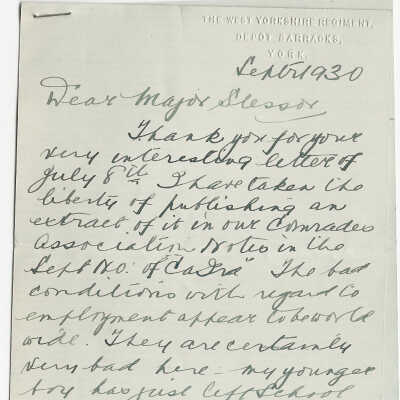 THE WEST YORKSHIRE REGIMENT,
DEPOT BARRACKS,
YORK.
Sept 1930
Dear Major Slessor
Thank you for your
very interesting letter of
July 8th. I have taken the
liberty of publishing an
extract of it in our Comrades
Association Notes in the
Sept No: of "Ca Ira" The bad
conditions with regard to
employment appear to be world
wide. They are certainly
very bad here - my younger
boy has just left School